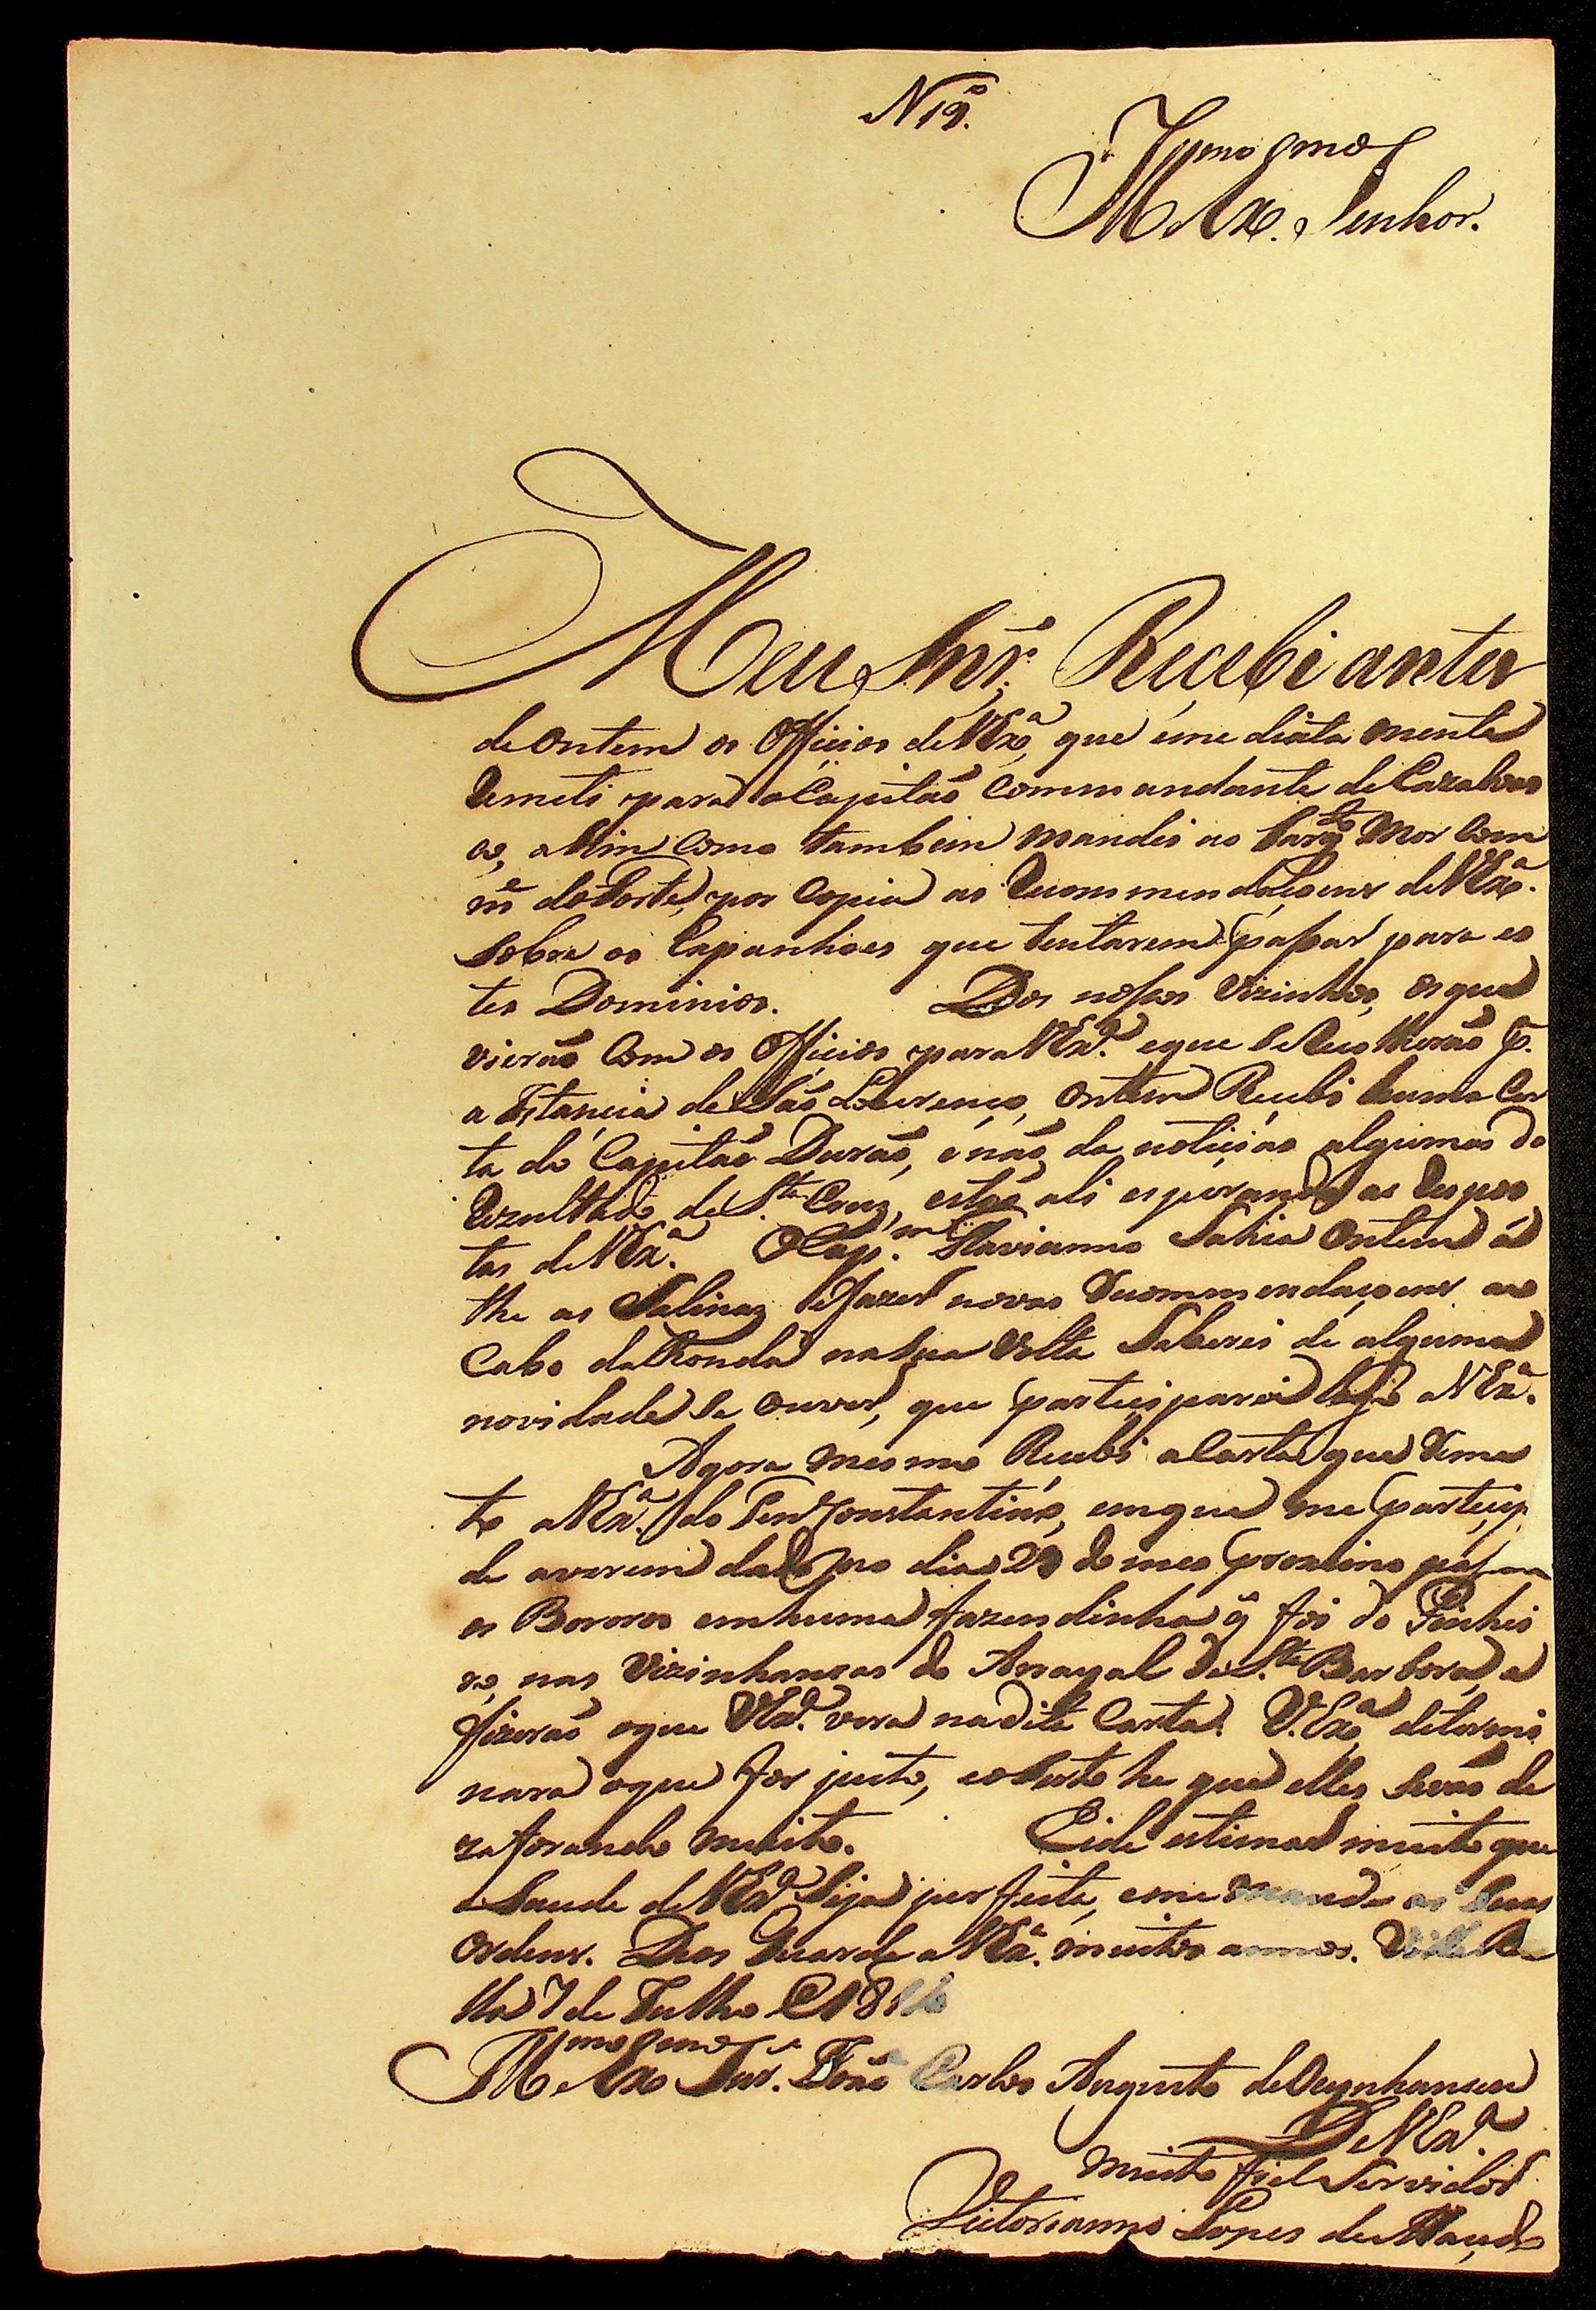 N.º 19.
Illmo e Exmo Senhor.
Meu Snr. Recebi antes
de ontem os Officios de V Exª, que émediata mente
Remeti para o Capitaõ Commandante de Cazalvas
co, assim como tambem mandei ao Sargto Mor Com
me do Forte, por Copia as Recommendaçoens de V Exª.
sobre os Espanhoes que tentarem passar para es
tes Dominios. Dos nossos Vizinhos, os que
vieraõ Com os Officios para V Exª. e que se Recolheraõ pª.
a Estancia de Saõ Lourenço, ontem Recebi huma Car
ta do Capitaõ Duraõ, e naõ da noticias algumas do
Rezultado de Sta Cruz, estaõ ali esperando as Respos
tas de V Exª. O Capm. Flavianno Sahio ontem á
the as Salinas a fazer novas Recommendaçoens ao
Cabo da Ronda na sua Volta Saberei de alguma
novidade se ouver, que participarei logo a V Exª.
Agora mesmo Recebi a Carta que Reme
to a V Exª. do Tene Constantino, em que me particip
de averem dado no dia 29 do mes proximo passa
os Bororos em huma fazendinha q̃ foi do Pinhei
ro, nas Vizinhansas do Arrayal de Sta Barbora, a
fizeraõ o que V Exª. vera na dita Carta. V. Exª. determi
nara o que for justo, e o Serto he que elles Se vaõ de
zaforando muito. Eide estimar muito que
a Saude de V Exª Seja perfeita, e me mande as suas
ordens. Deos Guarde a V Exª. muitos annos. Villa Be
lla 7 de Julho de 1816
Illmo e Exmo Snr. Joaõ Carlos Augusto de Oeynhausen
De V Exª.
muito fiel Servidor
Victorianno Lopes de Maced